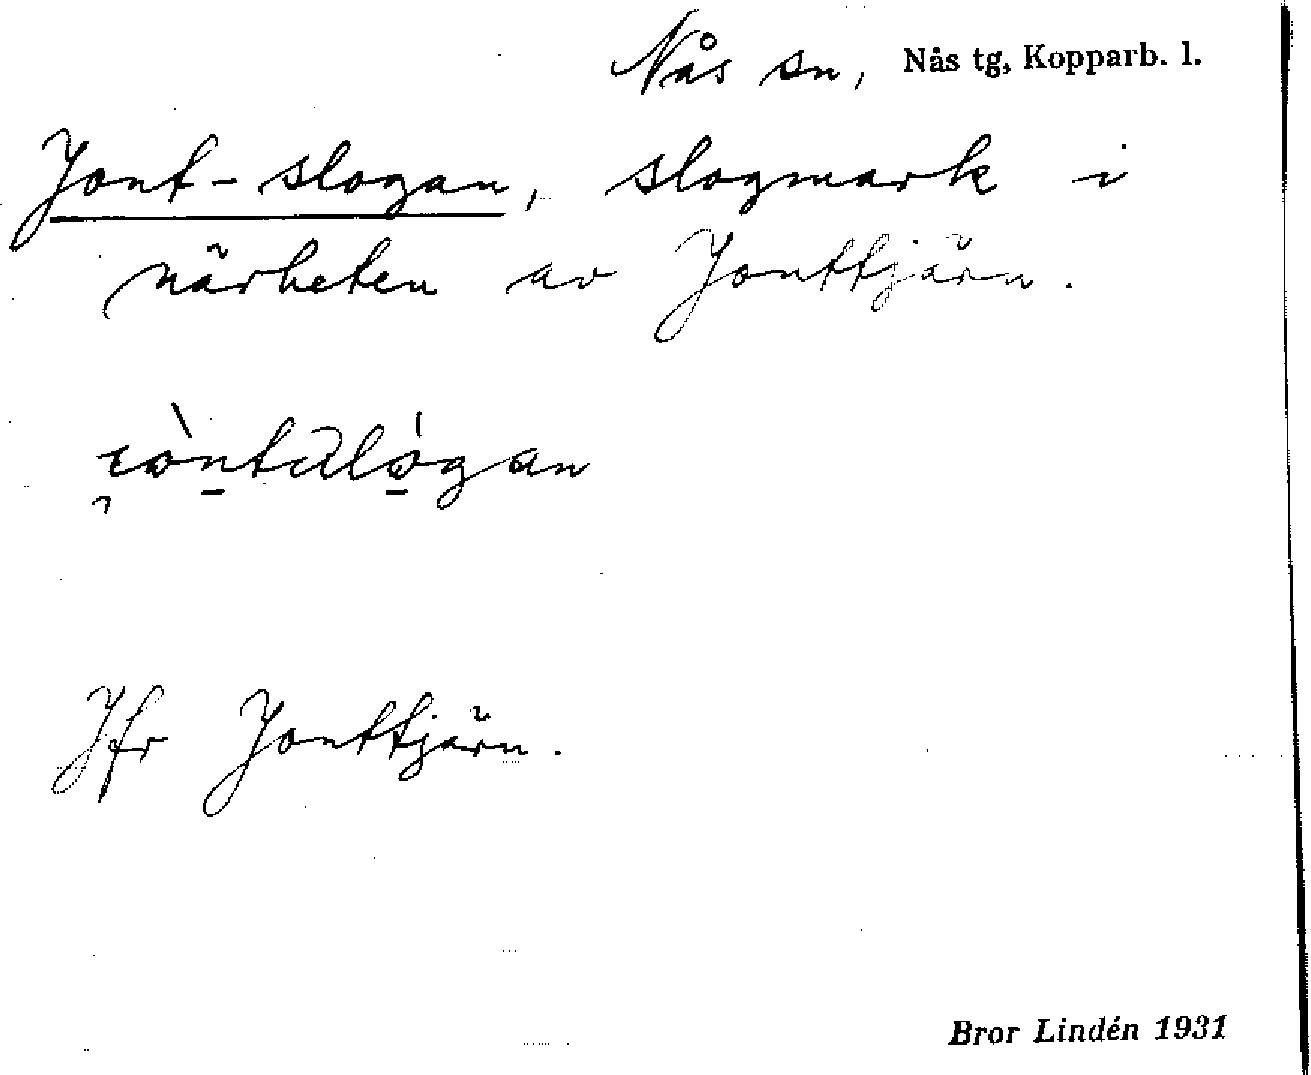 Nås sn, Nås tg, Kopparb. l.
Jont-slogan, slogmark i
närheten av Jonttjärn.
Jfr Jonttjärn.
Bror Lindén 1931